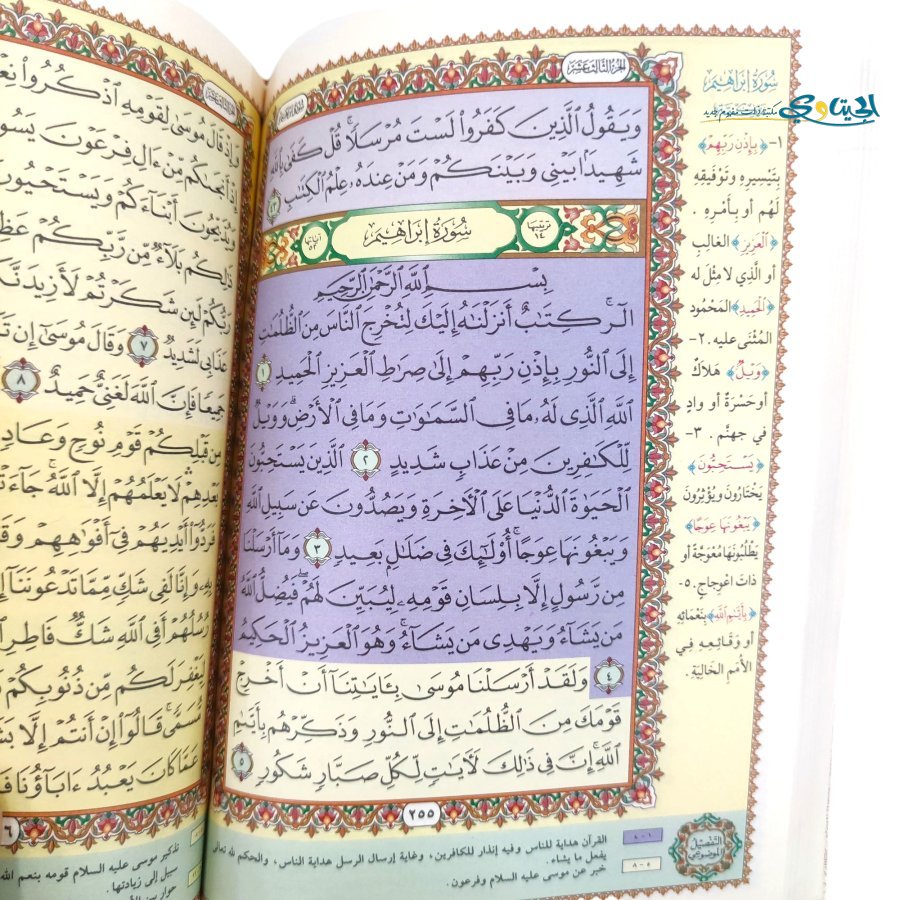 الجزء الثالث عشر
وَيَقُولُ الَّذِينَ كَفَرُوا۟ لَسْتَ مُرْسَلًا ۚ قُلْ كَفَىٰ بِٱللَّهِ
شَهِيدًۢا بَيْنِى وَبَيْنَكُمْ وَمَنْ عِندَهُۥ عِلْمُ ٱلْكِتَٰبِ ٤٣
ترتيبها ١٤ سُورَةُ إِبْرَاهِيم آياتها ٥٢
بِسْمِ ٱللَّهِ ٱلرَّحْمَٰنِ ٱلرَّحِيمِ
الٓر ۚ كِتَٰبٌ أَنزَلْنَٰهُ إِلَيْكَ لِتُخْرِجَ ٱلنَّاسَ مِنَ ٱلظُّلُمَٰتِ
إِلَى ٱلنُّورِ بِإِذْنِ رَبِّهِمْ إِلَىٰ صِرَٰطِ ٱلْعَزِيزِ ٱلْحَمِيدِ ١
ٱللَّهِ ٱلَّذِى لَهُۥ مَا فِى ٱلسَّمَٰوَٰتِ وَمَا فِى ٱلْأَرْضِ ۗ وَوَيْلٌ
لِّلْكَٰفِرِينَ مِنْ عَذَابٍ شَدِيدٍ ٢ ٱلَّذِينَ يَسْتَحِبُّونَ
ٱلْحَيَوٰةَ ٱلدُّنْيَا عَلَى ٱلْءَاخِرَةِ وَيَصُدُّونَ عَن سَبِيلِ ٱللَّهِ
وَيَبْغُونَهَا عِوَجًا ۚ أُو۟لَٰٓئِكَ فِى ضَلَٰلٍۭ بَعِيدٍ ٣ وَمَآ أَرْسَلْنَا
مِن رَّسُولٍ إِلَّا بِلِسَانِ قَوْمِهِۦ لِيُبَيِّنَ لَهُمْ ۖ فَيُضِلُّ ٱللَّهُ
مَن يَشَآءُ وَيَهْدِى مَن يَشَآءُ ۚ وَهُوَ ٱلْعَزِيزُ ٱلْحَكِيمُ
٤ وَلَقَدْ أَرْسَلْنَا مُوسَىٰ بِـَٔايَٰتِنَآ أَنْ أَخْرِجْ
قَوْمَكَ مِنَ ٱلظُّلُمَٰتِ إِلَى ٱلنُّورِ وَذَكِّرْهُم بِأَيَّىٰمِ
ٱللَّهِ ۚ إِنَّ فِى ذَٰلِكَ لَءَايَٰتٍ لِّكُلِّ صَبَّارٍ شَكُورٍ ٥
٢٥٥
سُورَةُ إِبْرَاهِيم
الحيتاوي
مكتبة ذات مفهوم جديد
١- ﴿بِإِذْنِ رَبِّهِمْ﴾
بِتَيْسِيرِهِ وَتَوْفِيقِهِ
لَهُم أو بِأَمْرِهِ .
﴿الْعَزِيزِ﴾ الغالِبِ
أو الَّذي لا مِثْلَ له
﴿الْحَمِيدِ﴾ المَحْمُود
المُثْنَى عليه. ٢-
﴿وَيْلٌ﴾ هَلاكٌ
أو حَسْرَةٌ أو وادٍ
في جهنَّم . ٣-
﴿يَسْتَحِبُّونَ﴾
يَخْتَارُونَ وَيُؤْثِرُونَ
﴿يَبْغُونَهَا عِوَجًا﴾
يَطْلُبُونَهَا مُعْوَجَّةً أو
ذاتَ اعْوِجاجٍ. ٥-
﴿بِأَيَّامِ اللهِ﴾ بِنَعْمائِهِ
أو وَقَائِعِهِ فِي
الأُمَمِ الخَالِيَةِ .
التفصيل الموضوعي
١ - ٤ القرآن هداية للناس وفيه إنذار للكافرين، وغاية إرسال الرسل هداية الناس، والحكم لله تعالى
يفعل ما يشاء.
٥ - ٨ خبر عن موسى عليه السلام وفرعون.
وَإِذْ قَالَ مُوسَىٰ لِقَوْمِهِ ٱذْكُرُوا۟
إِذْ أَنجَىٰكُم مِّنْ ءَالِ فِرْعَوْنَ
وَيُذَبِّحُونَ أَبْنَآءَكُمْ وَيَسْتَحْيُونَ
ذَٰلِكُم بَلَآءٌ مِّن رَّبِّكُمْ
رَبُّكُمْ لَئِن شَكَرْتُمْ لَأَزِيدَنَّكُمْ
عَذَابِى لَشَدِيدٌ ٧ وَقَالَ مُوسَىٰٓ إِن
جَمِيعًا فَإِنَّ ٱللَّهَ لَغَنِىٌّ حَمِيدٌ ٨
مِن قَبْلِكُمْ قَوْمِ نُوحٍ وَعَادٍ
بَعْدِهِمْ ۛ لَا يَعْلَمُهُمْ إِلَّا ٱللَّهُ ۚ
فَرَدُّوٓا۟ أَيْدِيَهُمْ فِىٓ أَفْوَٰهِهِمْ
بِهِۦ وَإِنَّا لَفِى شَكٍّ مِّمَّا تَدْعُونَنَآ
رُسُلُهُمْ أَفِى ٱللَّهِ شَكٌّ فَاطِرِ
لِيَغْفِرَ لَكُم مِّن ذُنُوبِكُمْ
مُّسَمًّى ۚ قَالُوٓا۟ إِنْ أَنتُمْ إِلَّا
عَمَّا كَانَ يَعْبُدُ ءَابَآؤُنَا
تذكير موسى عليه السلام قومه بنعم الله
سبيل إلى زيادتها.